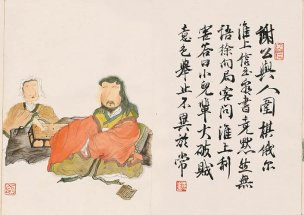 謝公與人圍棋俄尔
淮上信至看書竟默然無
語徐向局客問淮上利
害答曰小兒輩大破賊
意色舉止不異於常